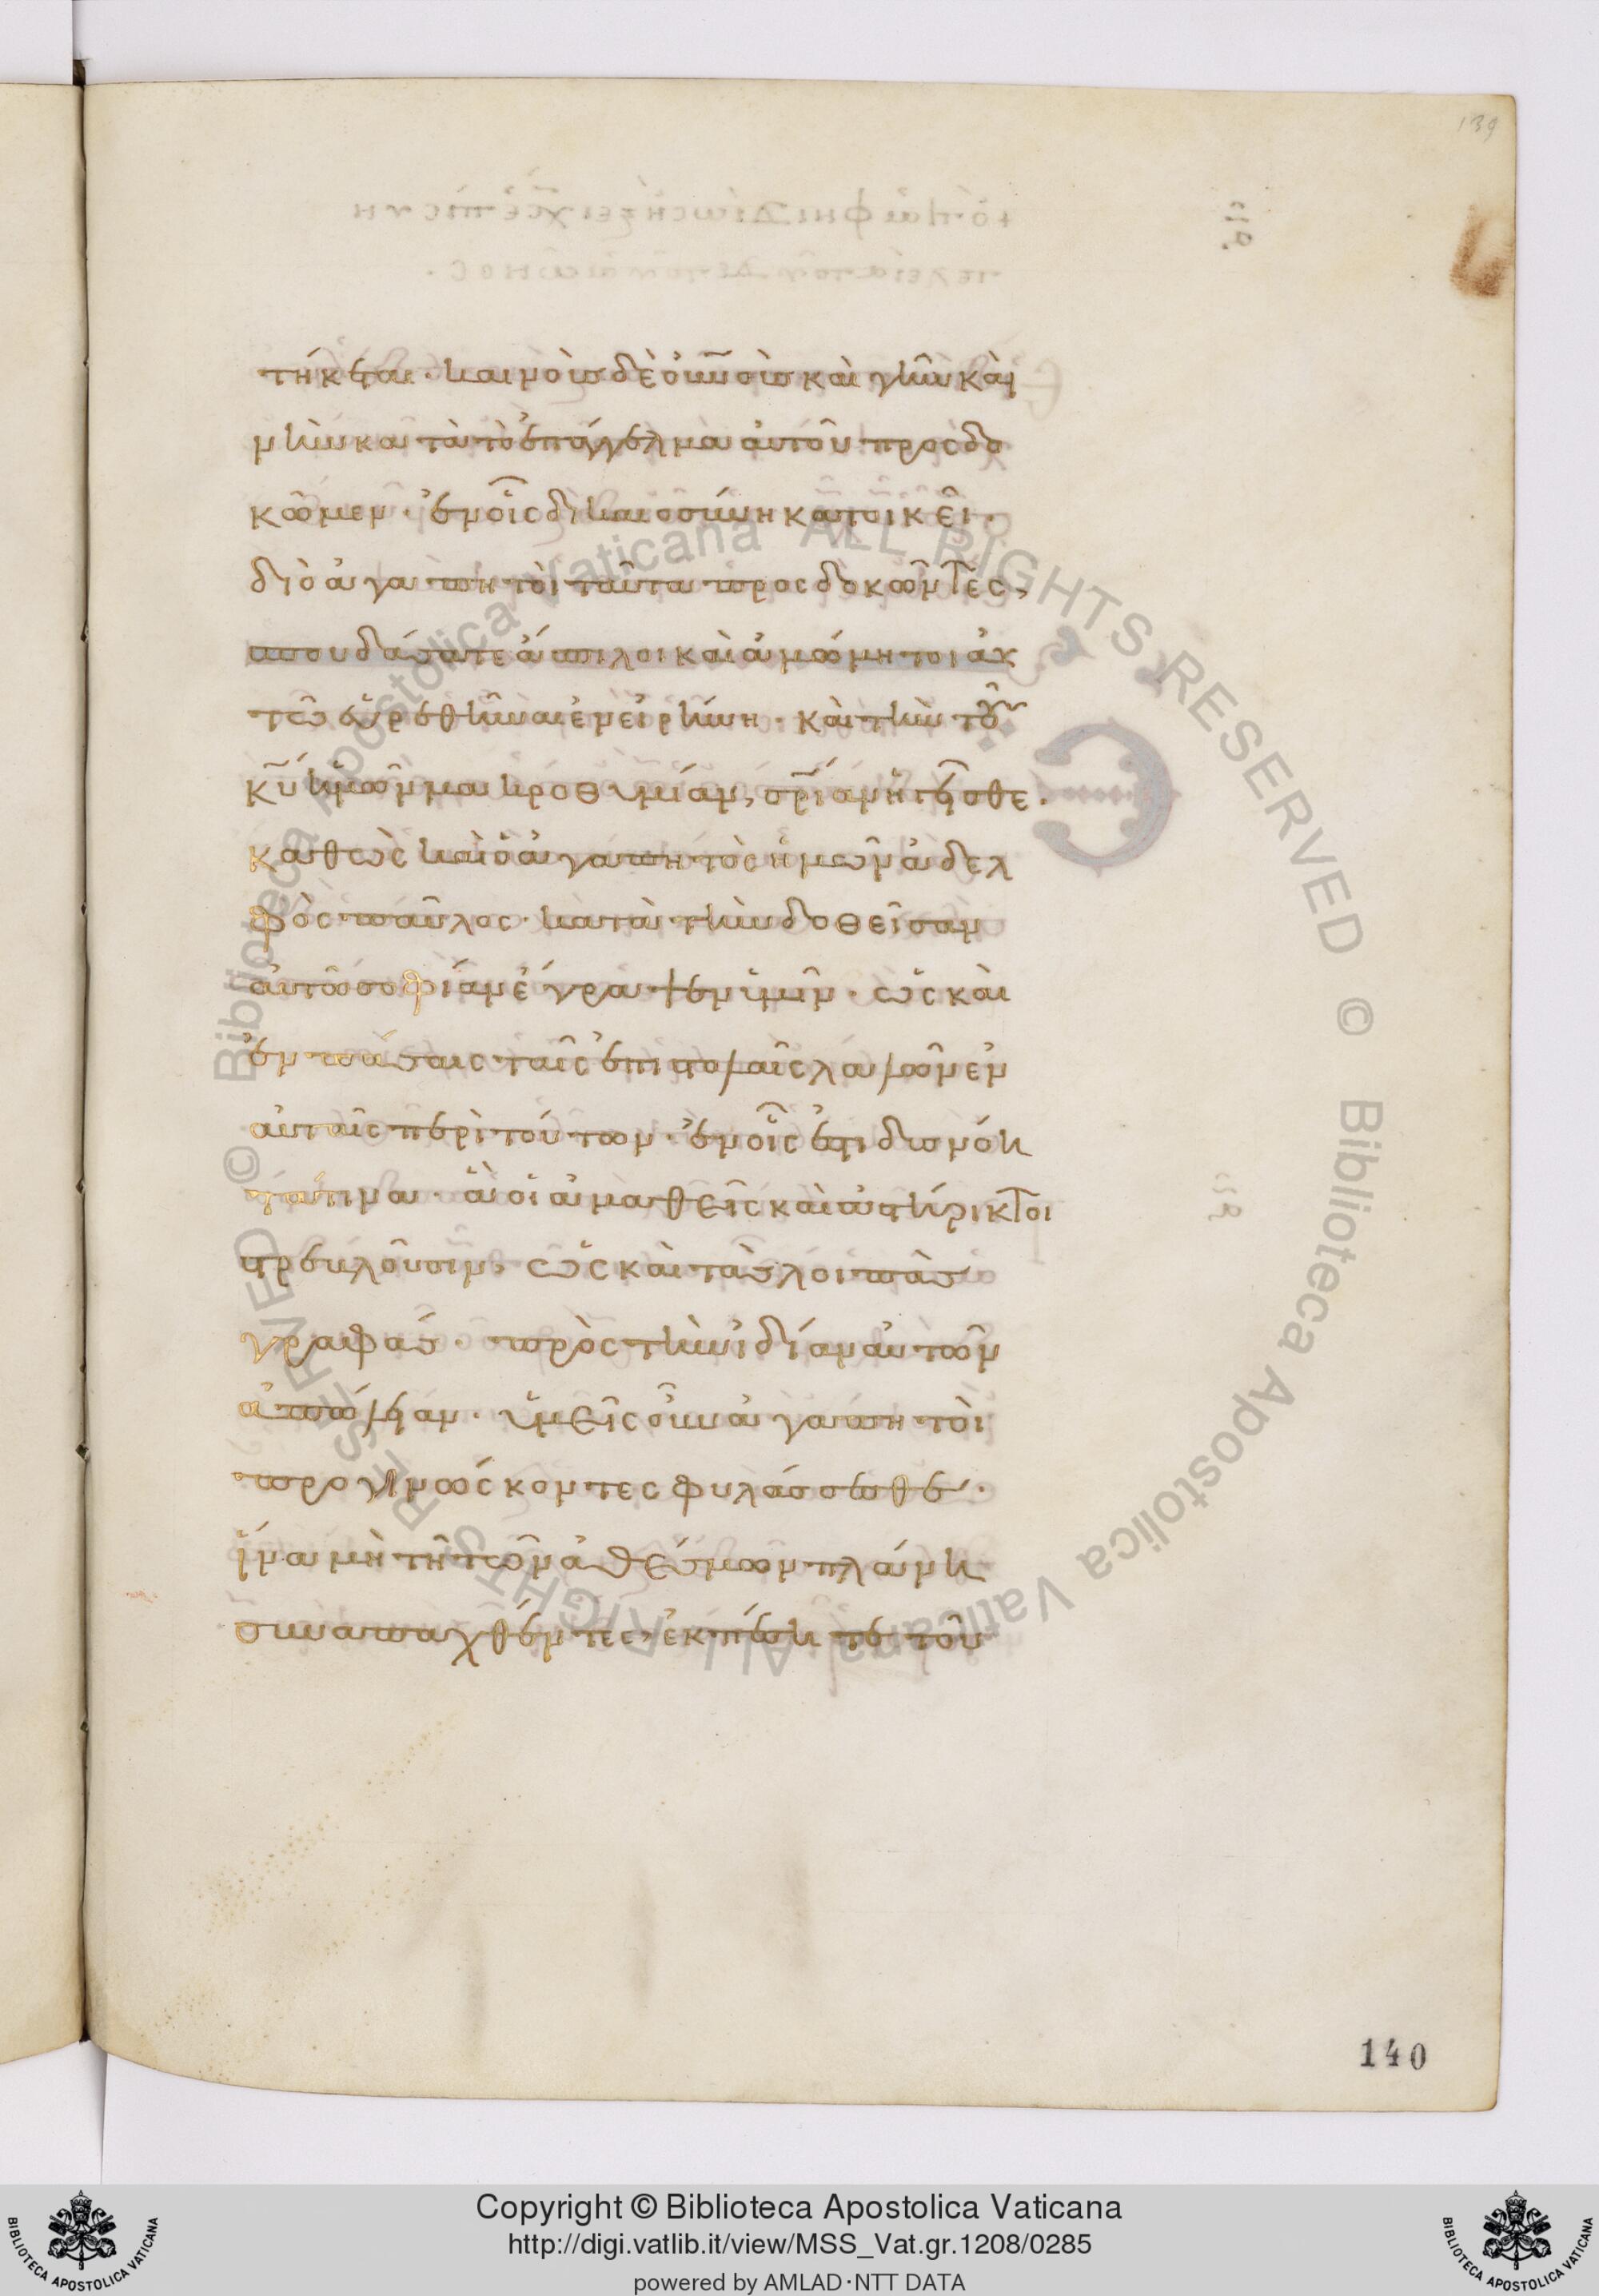 139
τήκεται · καινοὺσ δὲ οὐνοὺσ καὶ γῆν και
νὴν κατὰ τὸ ἐπάγγελμα αὐτοῦ προσδο
κῶμεν · ἐν οἷς δικαιοσύνη κατοικεῖ ·
διὸ ἀγαπητοὶ ταῦτα προσδοκῶντες,
σπουδάσατε ἄσπιλοι καὶ ἀμώμητοι αὐ
τῶ εὑρεθῆναι ἐν εἰρήνη · καὶ τὴν τοῦ
κ̅υ̅ ἡμῶν μακροθυμίαν, σ̅ρ̅ίαν ἡγεῖσθε ·
καθὼς καὶ ὁ ἀγαπητὸς ἡμῶν ἀδελ
φὸς παῦλος · κατὰ τὴν δοθεῖσαν
αὐτῶ σοφίαν ἔγραψεν ὑμῖν · ὡς καὶ
ἐν πάσαις ταῖς ἐπιστολαῖς λαλῶν ἐν
αὐταῖς περὶ τούτων · ἐν οἷς ἐστι δυσνόη
τά τινα · ἃ οἱ ἀμαθεῖς καὶ ἀστήρικτοι
στρεβλοῦσιν, ὡς καὶ τὰσ λοιπὰσ
γραφάσ · πρὸς τὴν ἰδίαν αὐτῶν
ἀπώλειαν · ὑμεῖς οὖν ἀγαπητοὶ
προγινώσκοντες φυλάσσεσθε ·
ἵνα μὴ τῆ τῶν ἀθέσμων πλάνη
συναπαχθέντες, ἐκπέσητε τοῦ
140
Biblioteca Apostolica Vaticana ALL RIGHTS RESERVED © Biblioteca Apostolica Vaticana ALL RIGHTS RESERVED ©
Copyright © Biblioteca Apostolica Vaticana
http://digi.vatlib.it/view/MSS_Vat.gr.1208/0285
powered by AMLAD·NTT DATA
BIBLIOTECA APOSTOLICA VATICANA
BIBLIOTECA APOSTOLICA VATICANA